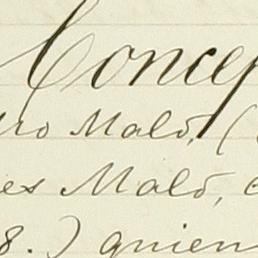 Concep
dro Maló, (
es Maló, c
8.) quien